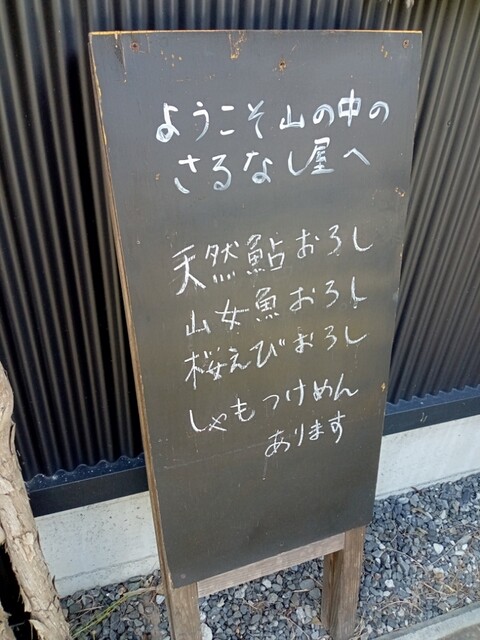 ようこそ山の中の
さるなし屋へ
天然鮎おろし
山女魚おろし
桜えびおろし
しゃもつけめん
あります